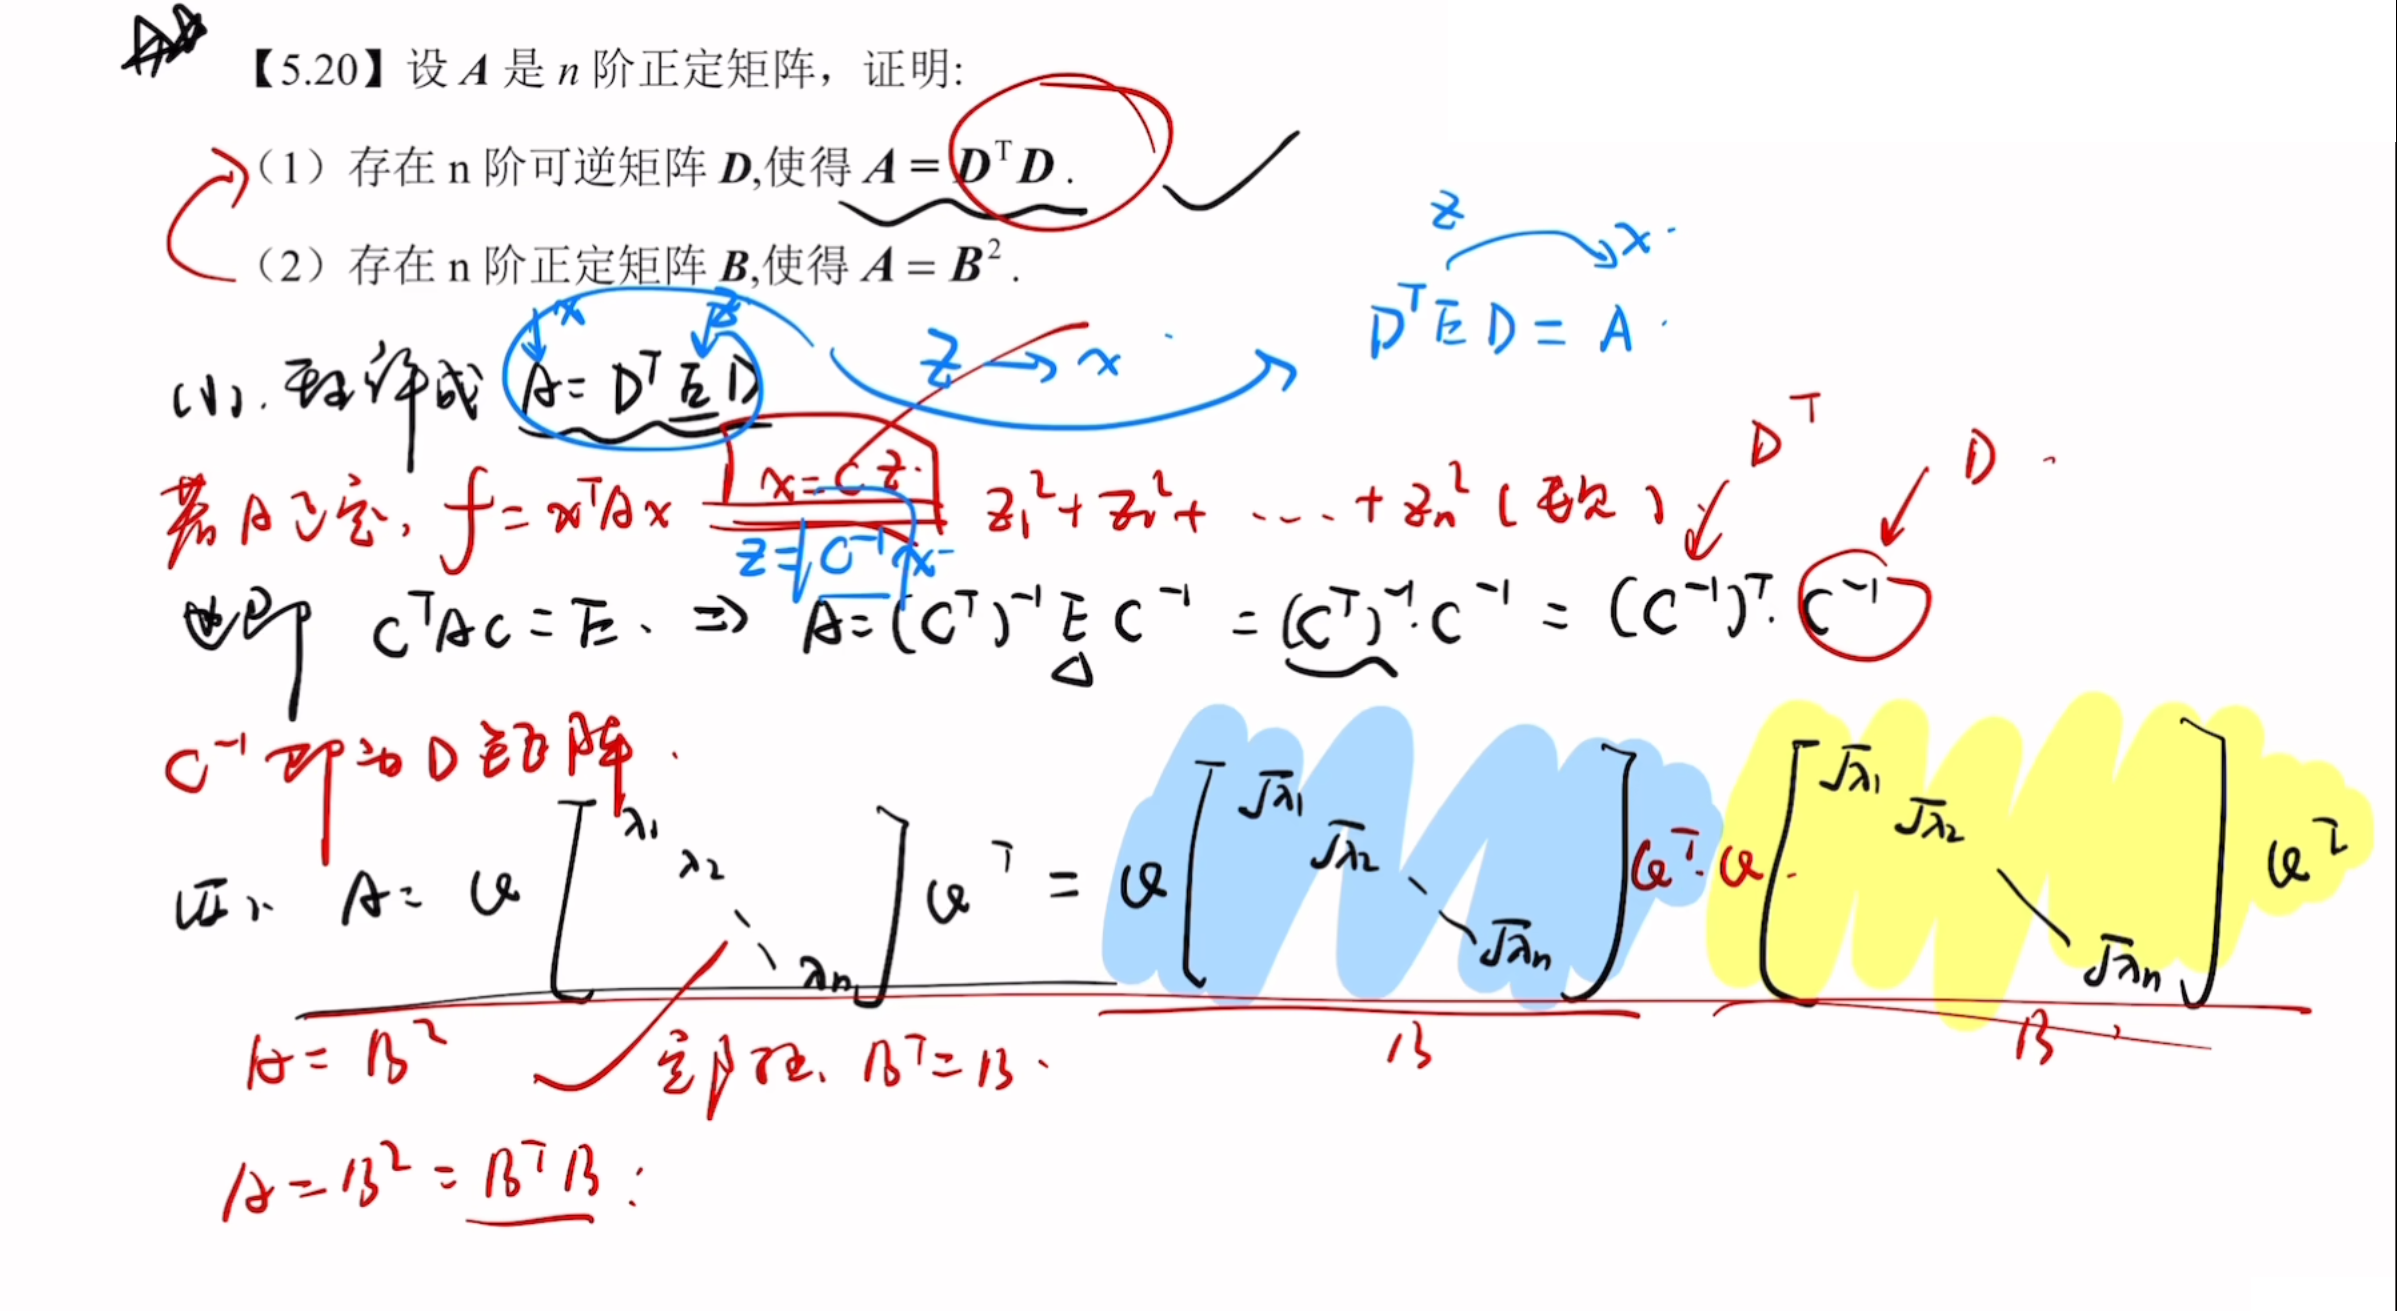 【5.20】设 A 是 n 阶正定矩阵，证明:
（1）存在 n 阶可逆矩阵 D,使得 A = DᵀD .
（2）存在 n 阶正定矩阵 B,使得 A = B² .
z x
DᵀED = A .
x z
(1). 理解成 A = DᵀED
z → x
Dᵀ D
若A正定, f = xᵀAx x = Cz. z₁² + z₂² + ... + zₙ² ( )
z = C⁻¹x
也即 CᵀAC = E、 ⇒ A = (Cᵀ)⁻¹EC⁻¹ = (Cᵀ)⁻¹·C⁻¹ = (C⁻¹)ᵀ·C⁻¹
C⁻¹即为D矩阵.
A = Q [λ₁ λ₂ ⋱ λn] Qᵀ = Q [√λ₁ √λ₂ ⋱ √λn] Qᵀ·Q [√λ₁ √λ₂ ⋱ √λn] Qᵀ
B B
A = B² 实对称、Bᵀ = B.
A = B² = BᵀB :